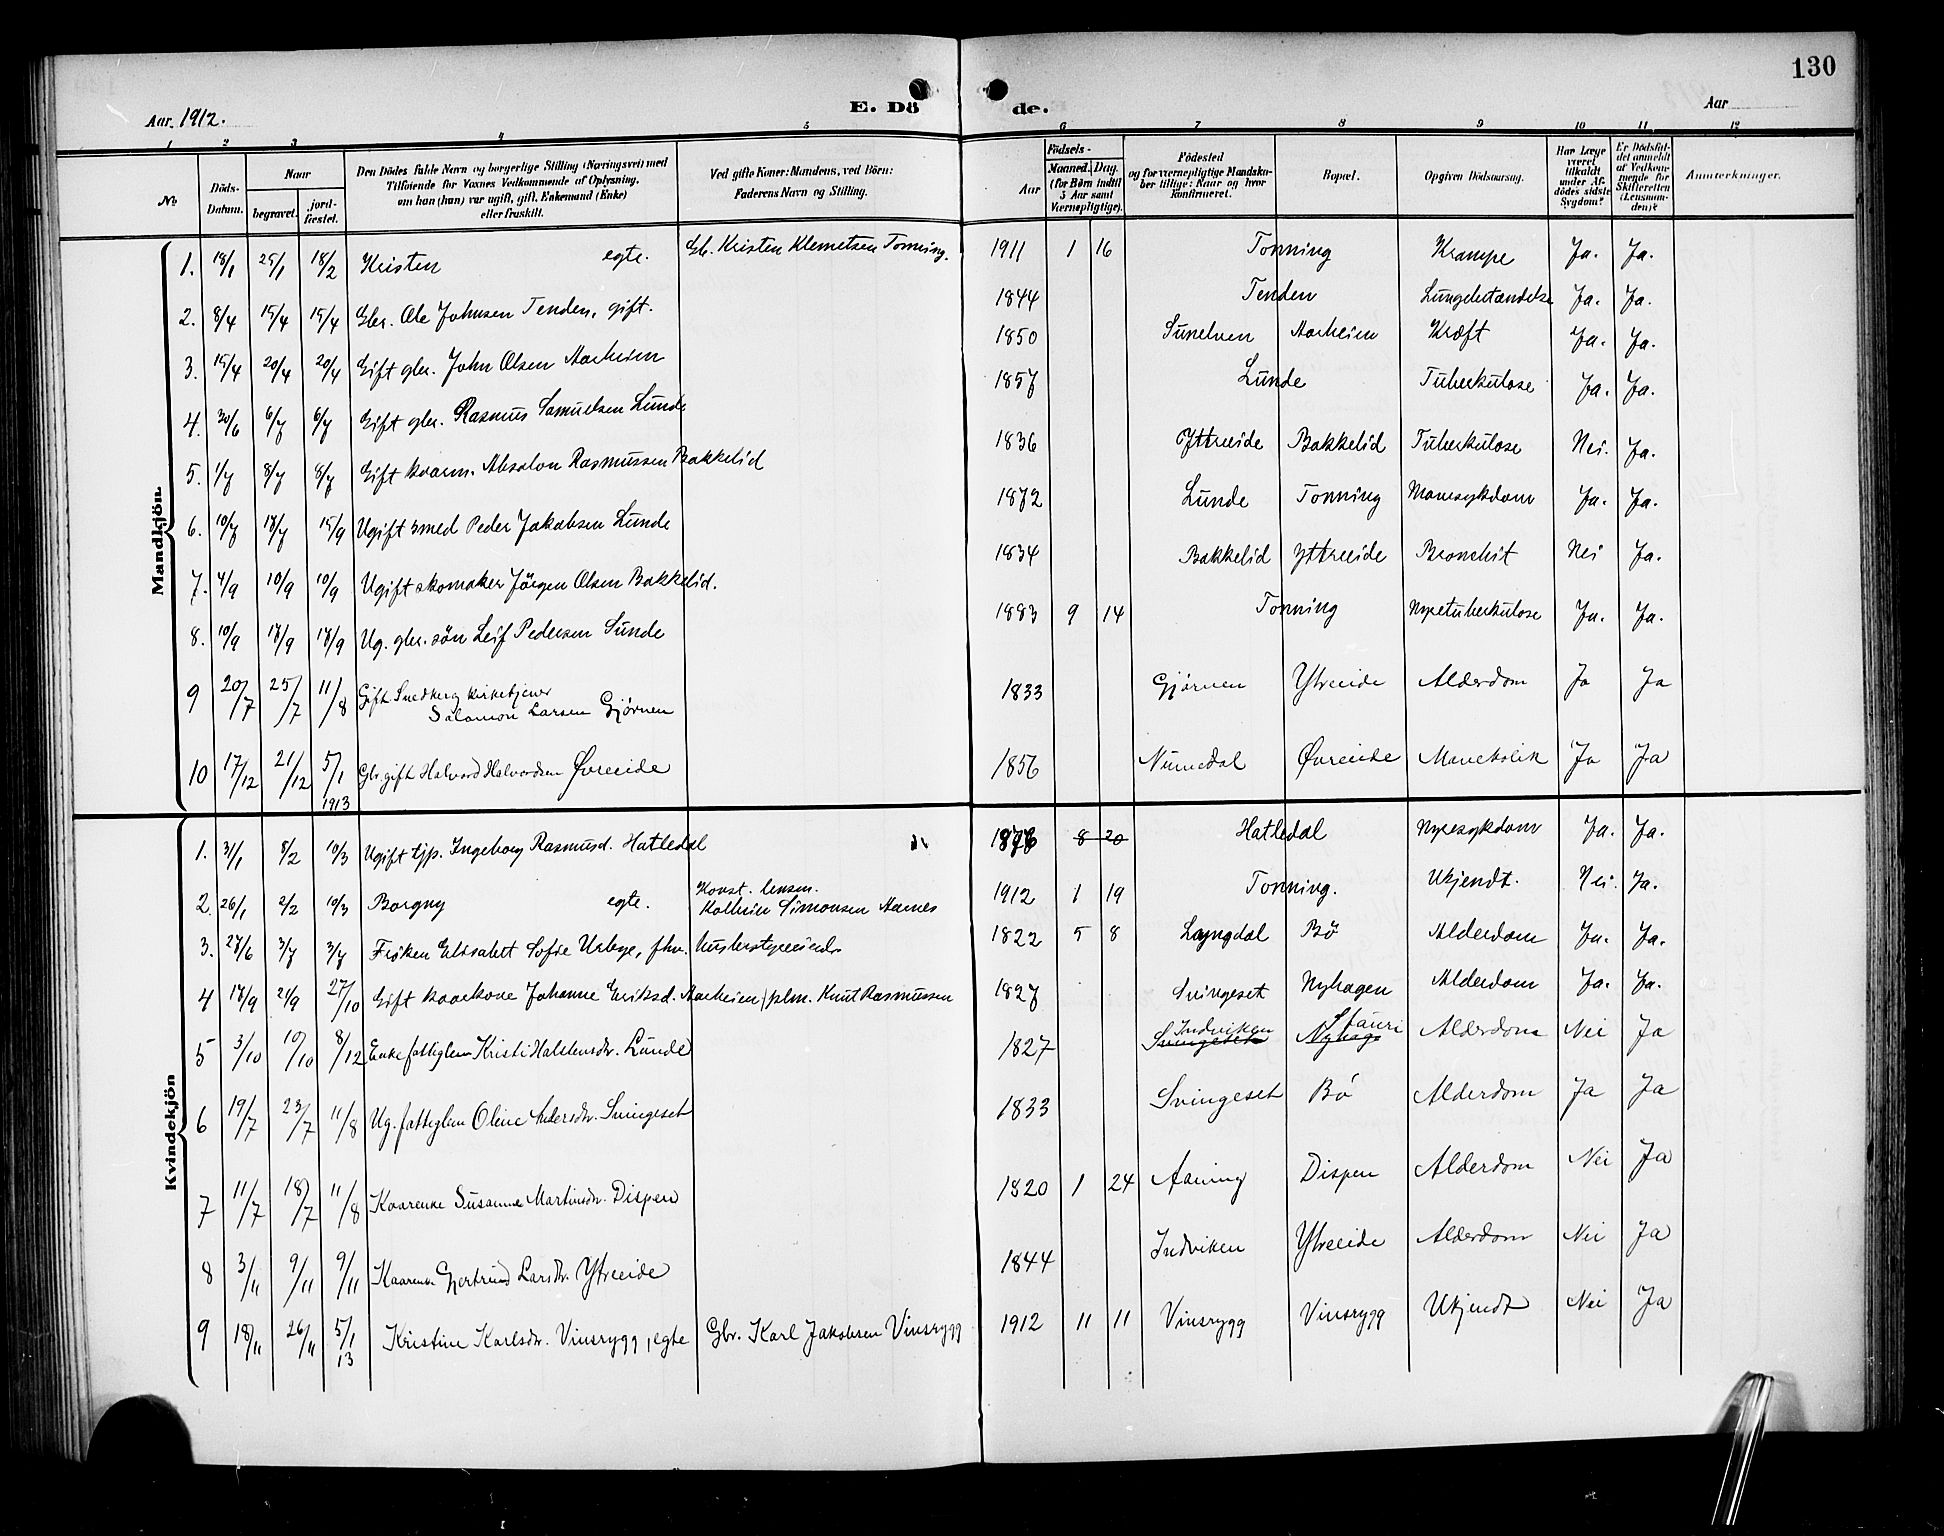 130
Aar 1912.
E. Döde.
Aar
1 2 3 4 5 6 7 8 9 10 11 12
No
Döds-Datum.
Naar
begravet.
jordfæstet.
Den Dödes fulde Navn og borgerlige Stilling (Næringsvei) med Tilföiende for Voxnes Vedkommende af Oplysning, om han (hun) var ugift, gift, Enkemand (Enke) eller fraskilt.
Ved gifte Koner: Mandens, ved Börn: Faderens Navn og Stilling.
Födsels-
Aar
Maaned. Dag. (for Børn indtil 5 Aar samt Værnepligtige).
Födested og for værnepligtige Mandskaber tillige: Naar og hvor konfirmeret.
Bopæl.
Opgiven Dödsaarsag.
Har Læge været tilkaldt under Afdödes sidste Sygdom?
Er Dödsfaldet anmeldt af Vedkommende for Skifteretten (Lensmanden)?
Anmærkninger.
Mandkjön.
1. 18/1 25/1 18/2 Kristen egte. Gb. Kristen Klemetsen Tonning. 1911 1 16 Tonning Krampe Ja. Ja.
2. 8/4 15/4 15/4 Gbr. Ole Johnsen Tenden, gift. 1844 Tenden Lungebetændelse Ja. Ja.
3. 15/4 20/4 20/4 Gift gbr. John Olsen Aarheim 1850 Sunelven Aarheim Kræft Ja. Ja.
4. 30/6 6/7 6/7 Gift gbr. Rasmus Samuelsen Lunde 1857 Lunde Tuberkulose Ja. Ja.
5. 1/7 8/7 8/7 Gift kaarm. Absalon Rasmussen Bakkelid 1836 Yttreeide Bakkelid Tuberkulose Nei. Ja.
6. 10/7 17/7 15/9 Ugift smed Peder Jakobsen Lunde 1872 Lunde Tonning Mavesykdom Ja. Ja.
7. 4/9 10/9 10/9 Ugift skomaker Jörgen Olsen Bakkelid. 1834 Bakkelid Yttreeide Bronchit Nei Ja.
8. 10/9 17/9 17/9 Ug. gbr. sön Leif Pedersen Sunde 1883 9 14 Tonning Nyretuberkulose Ja. Ja.
9 20/7 25/7 11/8 Gift Snedker og kirketjener Salamon Larsen Gjørnen 1833 Gjørnen Ytreeide Alderdom Ja Ja
10 17/12 21/12 5/1 1913 Gbr. gift Halvard Halvardsen Øvreeide 1856 Numedal Øvreeide Mavekolik Ja Ja
Kvindekjön
1. 31/1 8/2 10/3 Ugift tjp. Ingeborg Rasmusd. Hatledal 1876 8 20 Hatledal Nyresykdom Ja. Ja.
2. 26/1 2/2 10/3 Borgny egte. Konst. lensm. Kolbein Simonsen Aarnes 1912 1 19 Tonning. Ukjendt. Nei. Ja.
3. 27/6 3/7 3/7 Fröken Elisabett Sofie Urbye, fhv. husbestyrerinde 1822 5 8 Lyngdal Bö Alderdom Ja. Ja.
4 17/9 21/9 27/10 Gift kaarkone Johanne Eriksd. Aarheim / plm. Knut Rasmussen 1827 Svingeset Nyhagen Alderdom Ja. Ja.
5 3/10 10/10 8/12 Enke fattiglem Kristi Halstensdr. Lunde 1827 Svingeset Indviken Nyhage Stauri Alderdom Nei Ja
6 19/7 23/7 11/8 Ug. fattiglem Oline Andersdr. Svingeset 1833 Svingeset Bö Alderdom Ja Ja
7 11/7 18/7 11/8 Kaarenke Susanne Martinsdr. Dispen 1820 1 24 Aaning Dispen Alderdom Nei Ja
8 3/11 9/11 9/11 Kaarenke Gjertrud Larsdr. Ytreeide 1844 Indviken Ytreeide Alderdom Nei Ja
9 18/11 26/11 5/1 13 Kristine Karlsdr. Vinsrygg, egte Gbr. Karl Jakobsen Vinsrygg 1912 11 11 Vinsrygg Vinsrygg Ukjendt Nei Ja